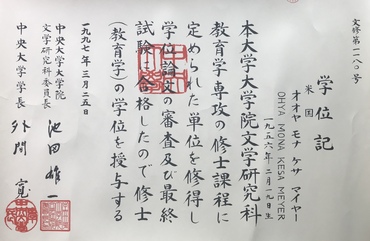 文修第一一八〇号
学位記
米国
オオヤ モナ ケサ マイヤー
OHYA MONA KESA MEYER
一九五六年二月一九日生
本大学大学院文学研究科
教育学専攻の修士課程に
定められた単位を修得し
学位論文の審査及び最終
試験に合格したので修士
(教育学)の学位を授与する
一九九七年三月二五日
中央大学大学院
文学研究科委員長 池田雄一
中央大学学長 外間寛